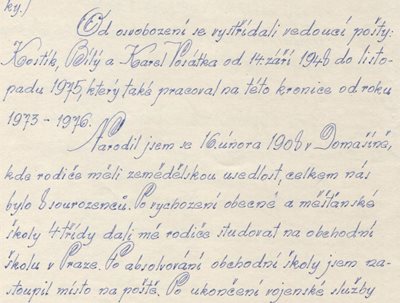 ky.)
Od osvobození se vystřídali vedoucí pošty:
Kostík, Bílý a Karel Posátka od 14. září 1948 do listo-
padu 1975, který také pracoval na této kronice od roku
1973 - 1976.
Narodil jsem se 16. února 1908 v Domašíně,
kde rodiče měli zemědělskou usedlost, celkem nás
bylo 8 sourozenců. Po vychození obecné a měšťanské
školy 4 třídy dali mé rodiče studovat na obchodní
školu v Praze. Po absolvování obchodní školy jsem na-
stoupil místo na poště. Po ukončení vojenské služby